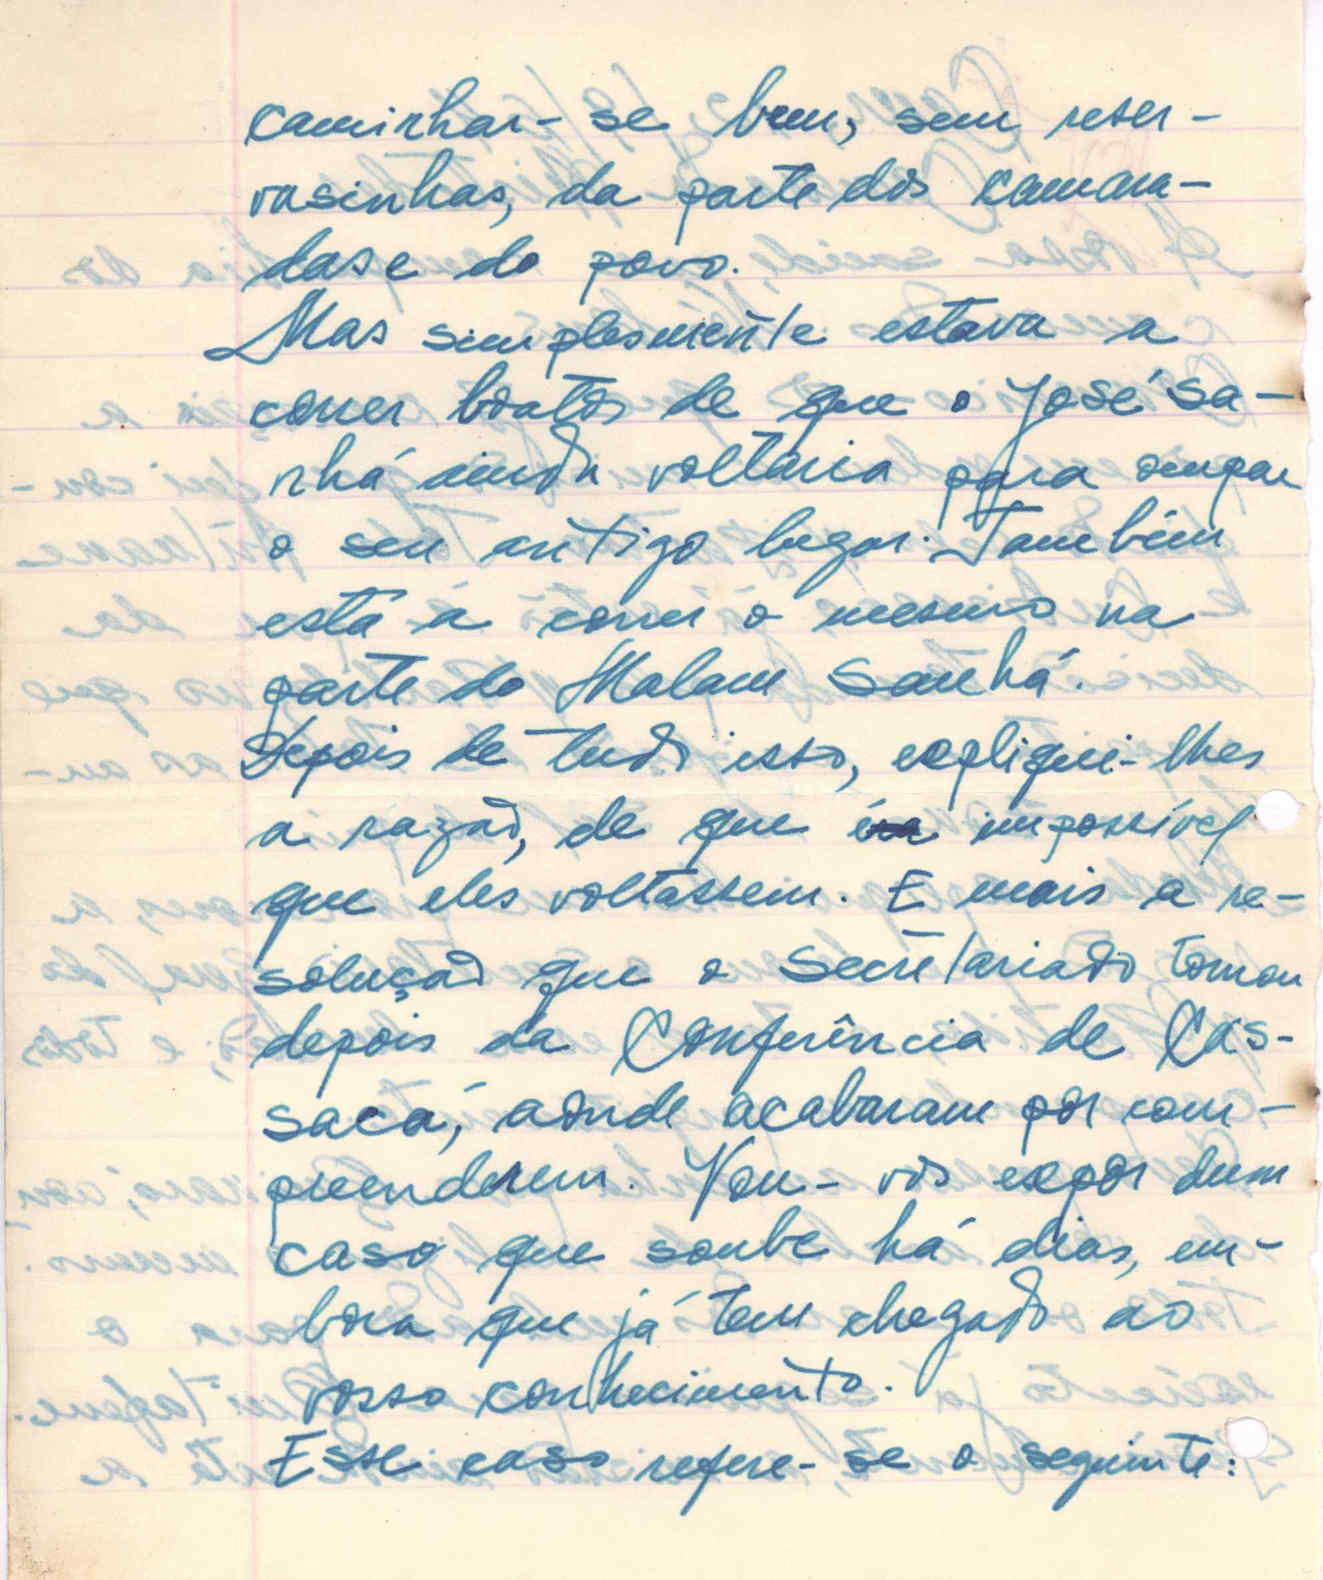 caminhar-se bem, sem reser-
vasinhas, da parte dos camara-
das e do povo.
Mas simplesmente estava a
correr boatos de que o José Sa-
nhá ainda voltaria para ocupar
o seu antigo lugar. Também
está á correr o mesmo na
parte do Malam Sanhá.
Depois de tudo isso, expliquei-lhes
a razão, de que impossível
que eles voltassem. E mais a re-
solução que o Secretariado tomou
depois da Conferência de Cas-
sacá, aonde acabaram por com-
preenderem. Vou-vos expôr dum
caso que soube há dias, em-
bora que já tem chegado ao
vosso conhecimento.
Esse caso refere-se o seguinte: